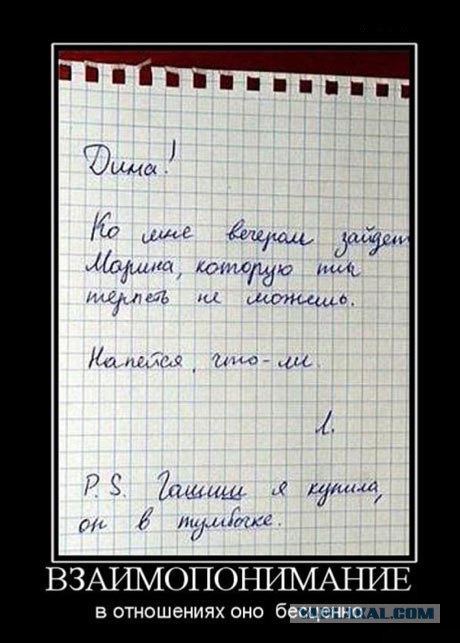 Дима!
Ко мне вечером зайдет
Марина, которую ты
терпеть не можешь.
Напейся, что-ли.
Л.
P.S. Гашиш я купила,
он в тумбочке.
ВЗАИМОПОНИМАНИЕ
в отношениях оно бесценно